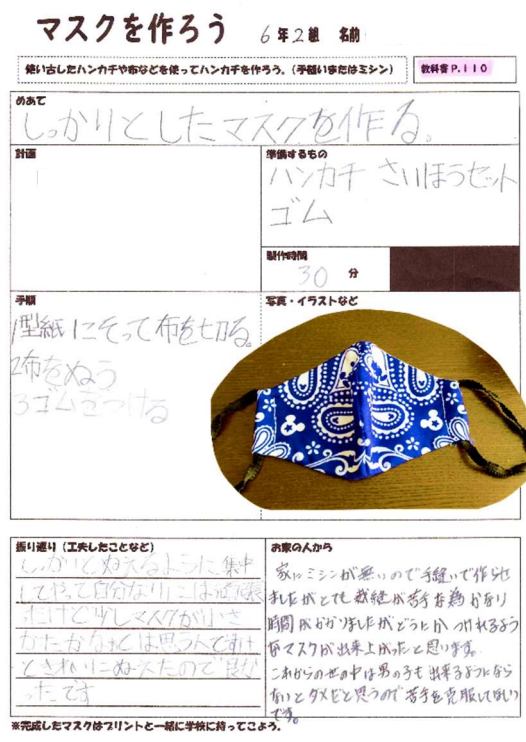 マスクを作ろう 6年2組 名前
使い古したハンカチや布などを使ってハンカチを作ろう。(手縫いまたはミシン)
教科書P.110
めあて
しっかりとしたマスクを作る。
計画
準備するもの
ハンカチ さいほうセット
ゴム
製作時間
30 分
手順
1型紙にそって布を切る。
2布をぬう
3ゴムをつける
写真・イラストなど
振り返り(工夫したことなど)
しっかりとぬえるように、集中
してやって自分なりには頑張
ったけど少しマスクが小さ
かったかなとは思うんですけ
どきれいにぬえたので良か
ったです
お家の人から
家にミシンが無いので手縫いで作らせ
ましたがとても裁縫が苦手な為かなり
時間がかかりましたがどうにかつけれるよう
なマスクが出来上がったと思います。
これからの世の中は男の子も出来るようになら
ないとダメだと思うので苦手を克服してほしい
です。
※完成したマスクはプリントと一緒に学校に持ってこよう。